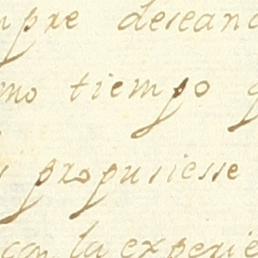 mpre deseand
mo tiempo q
s propusiesse
con la experie